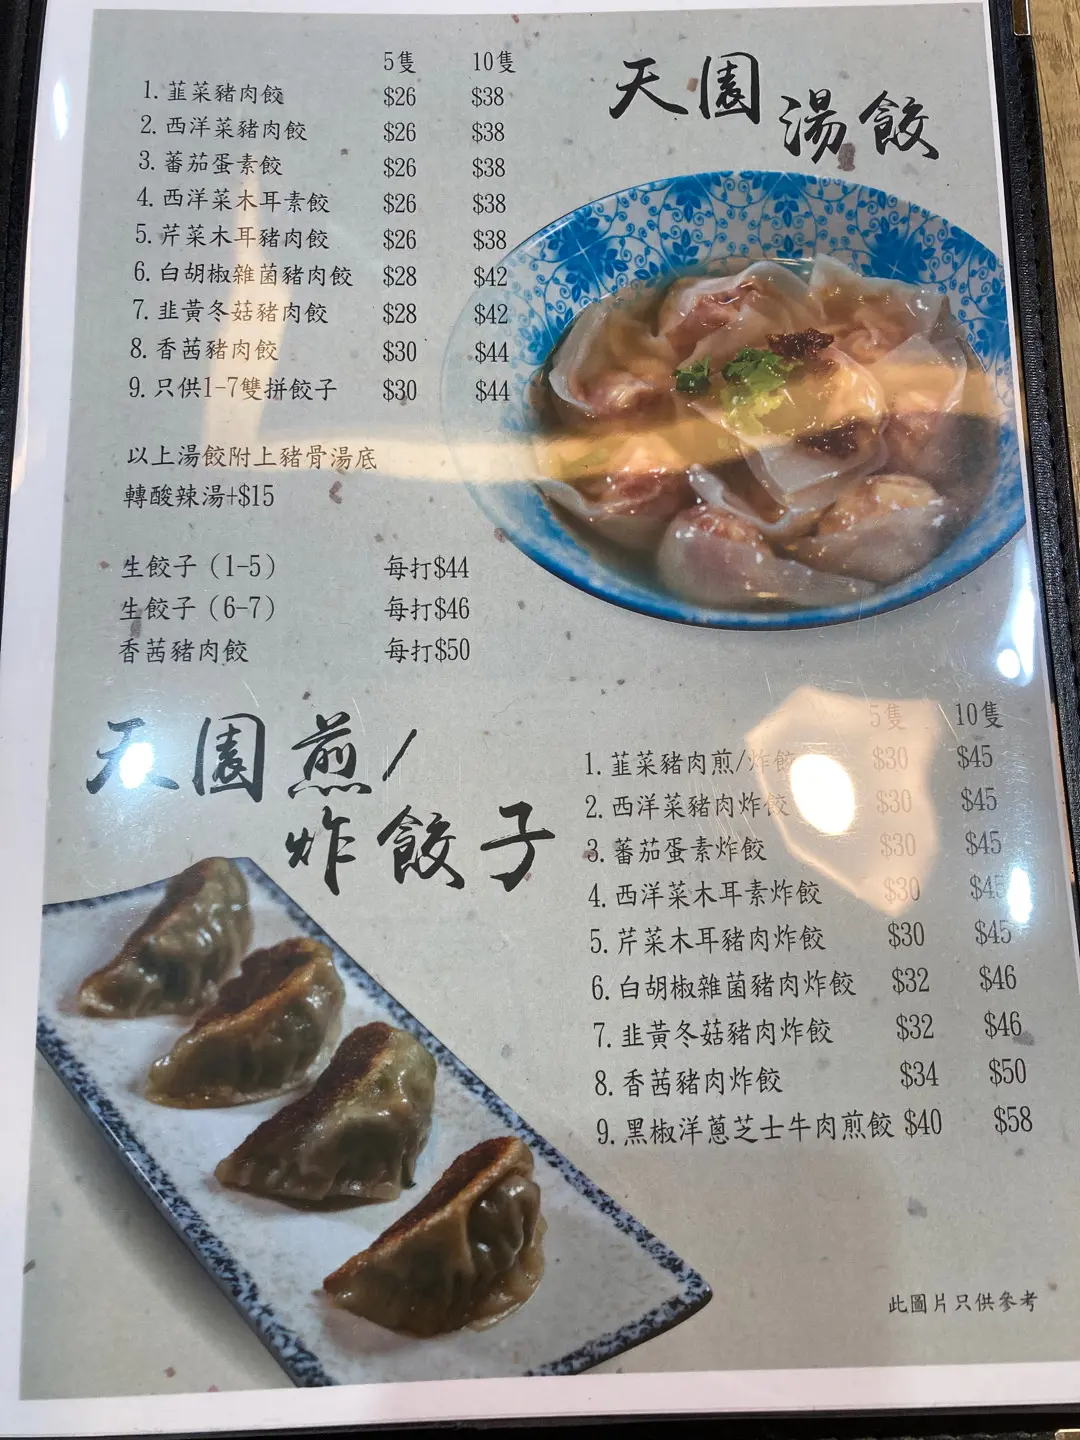 天園 湯餃
5隻 10隻
1. 韮菜豬肉餃 $26 $38
2. 西洋菜豬肉餃 $26 $38
3. 蕃茄蛋素餃 $26 $38
4. 西洋菜木耳素餃 $26 $38
5. 芹菜木耳豬肉餃 $26 $38
6. 白胡椒雜菌豬肉餃 $28 $42
7. 韭黃冬菇豬肉餃 $28 $42
8. 香茜豬肉餃 $30 $44
9. 只供1-7雙拼餃子 $30 $44
以上湯餃附上豬骨湯底
轉酸辣湯+$15
生餃子（1-5） 每打$44
生餃子（6-7） 每打$46
香茜豬肉餃 每打$50
天園煎/
炸餃子
5隻 10隻
1. 韮菜豬肉煎/炸餃 $30 $45
2. 西洋菜豬肉炸餃 $30 $45
3. 蕃茄蛋素炸餃 $30 $45
4. 西洋菜木耳素炸餃 $30 $45
5. 芹菜木耳豬肉炸餃 $30 $45
6. 白胡椒雜菌豬肉炸餃 $32 $46
7. 韭黃冬菇豬肉炸餃 $32 $46
8. 香茜豬肉炸餃 $34 $50
9. 黑椒洋蔥芝士牛肉煎餃 $40 $58
此圖片只供參考